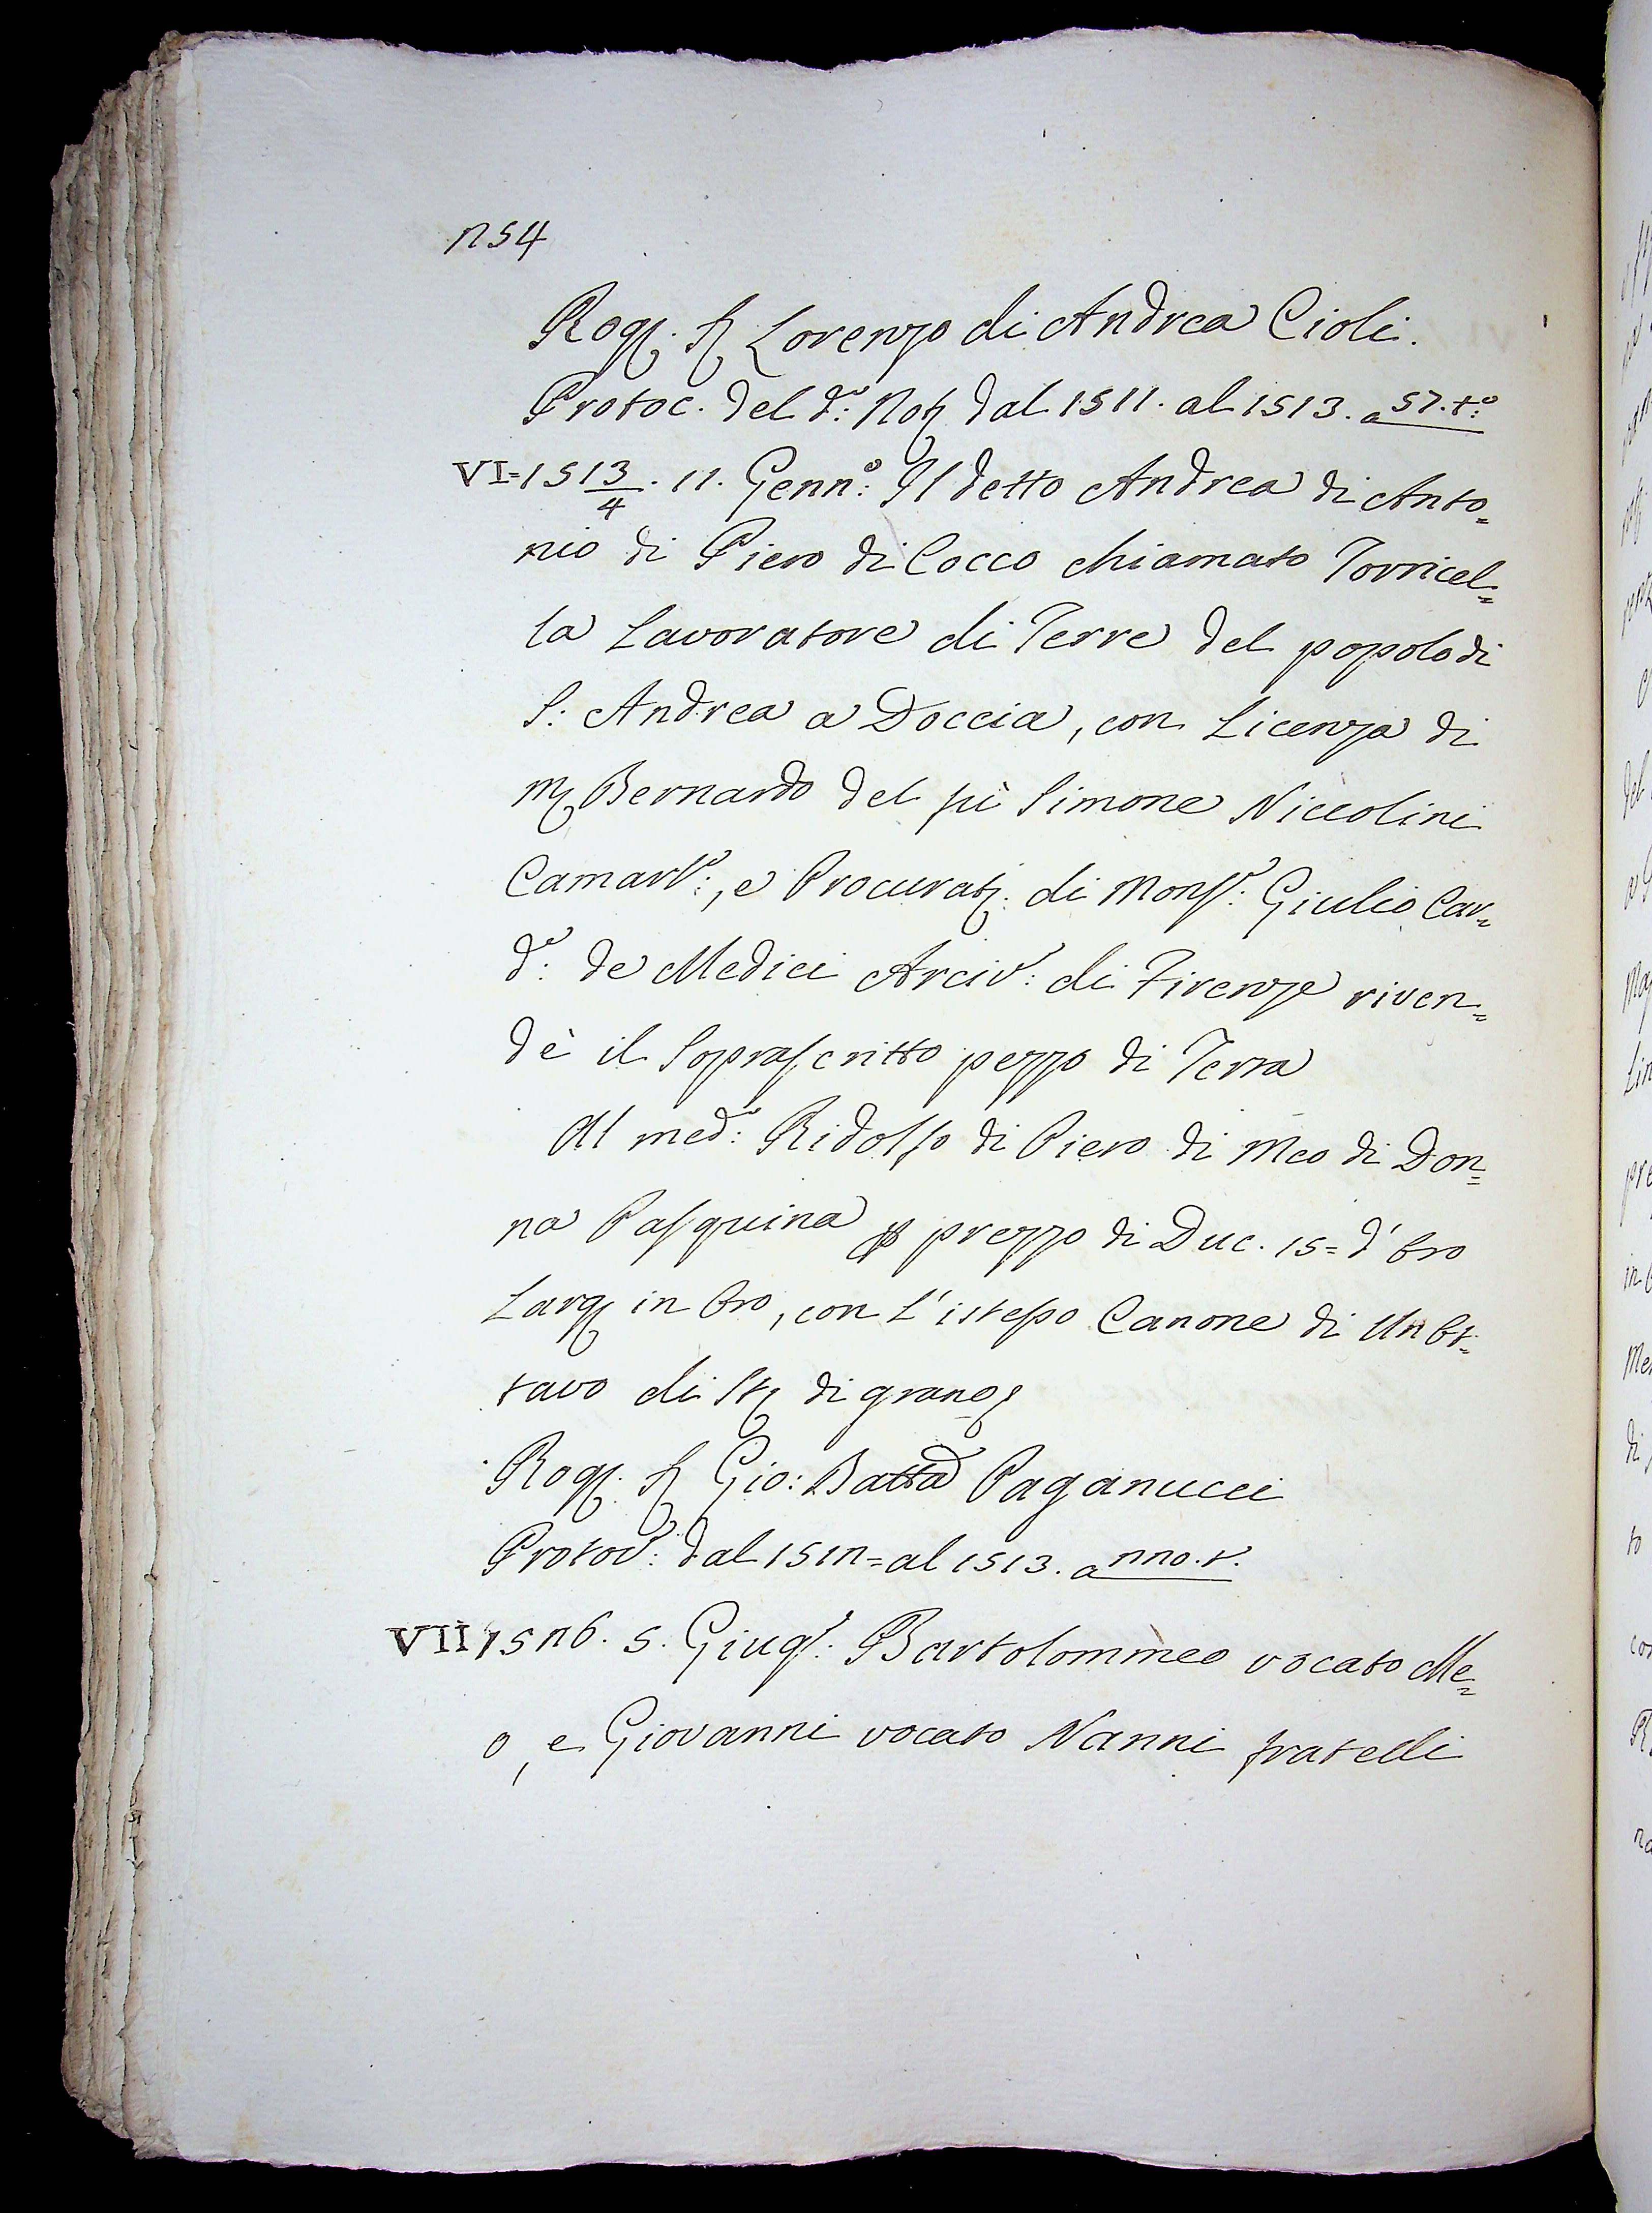 254
Rog. S. Lorenzo di Andrea Cioli.
Protoc. del d.º: Not. dal 1511. al 1513. a 57. t.º
VI=1513/4. 11. Genn.º: Il detto Andrea di Anto=
nio di Piero di Cocco chiamato Torricel=
la Lavoratore di Terre del popolo di
S: Andrea a Doccia, con Licenza di
M. Bernardo del fù Simone Niccolini
Camarl.º:, e Procurat. di Mons.r: Giulio Car=
d.e: de Medici Arciv.º: di Firenze riven=
dè il Soprascritto pezzo di Terra
Al med.º: Ridolfo di Piero di Meo di Don=
na Pasquina p prezzo di Duc. 15= d'Oro
Larg. in Oro, con l'istesso Canone di Un Ot=
tavo di St. di grano
Rog. S. Gio: Batta Paganucci
Protoc.º: dal 1512= al 1513. a 220. t.
VII 1526. 5. Giug.º: Bartolommeo vocato Me=
o, e Giovanni vocato Nanni fratelli